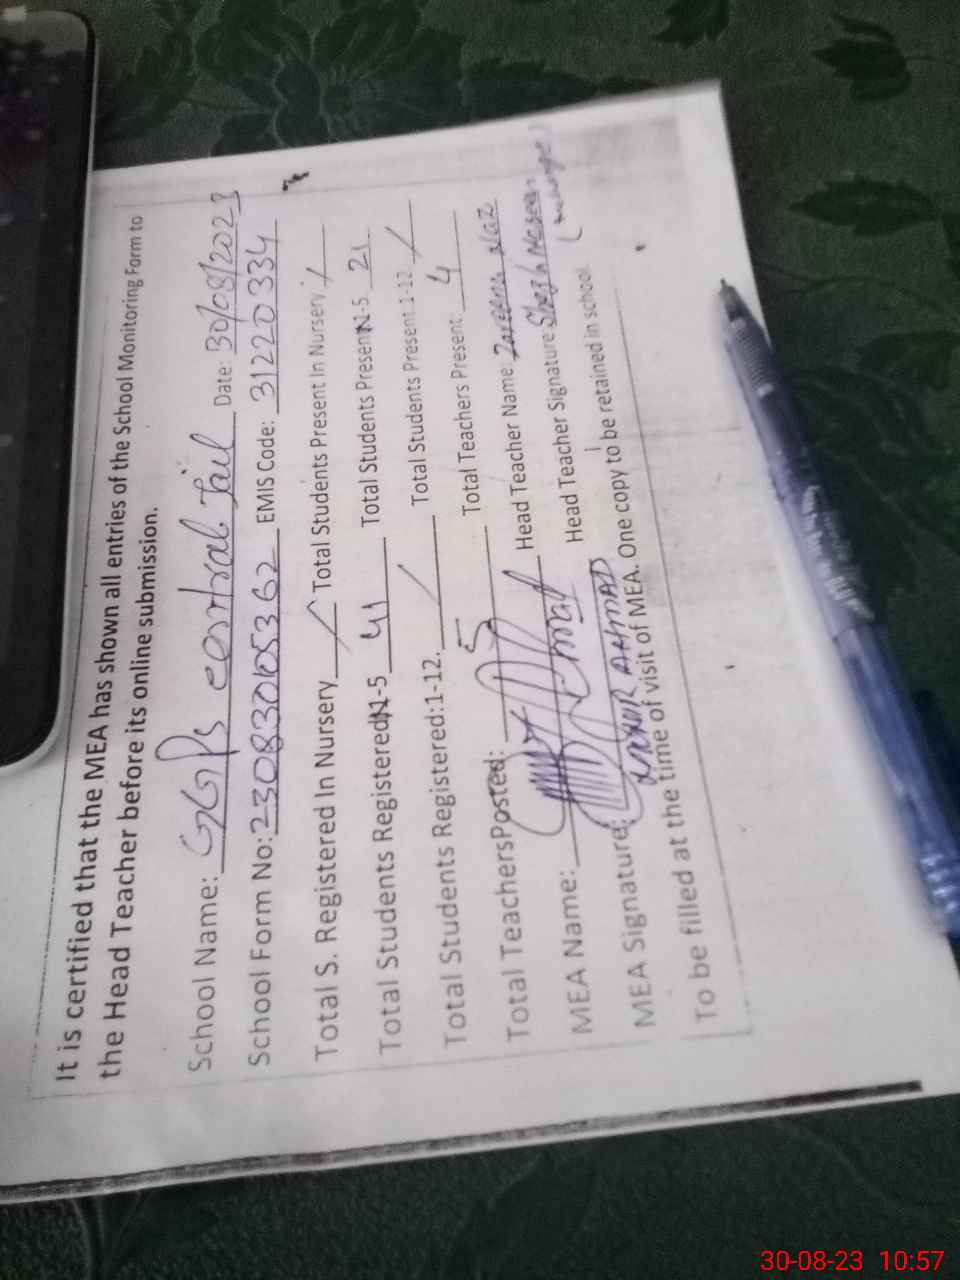 It is certified that the MEA has shown all entries of the School Monitoring Form to
the Head Teacher before its online submission.
School Name: GGPS central Jail Date: 30/08/2023
School Form No: 230830105362 EMIS Code: 31220334
Total S. Registered In Nursery / Total Students Present In Nursery /
Total Students Registered N-5 41 Total Students Present N-5 21
Total Students Registered:1-12. / Total Students Present 1-12 /
Total Teachers Posted: 5 Total Teachers Present: 4
MEA Name: Head Teacher Name: Zareena Naz
MEA Signature: AHMAD Head Teacher Signature
To be filled at the time of visit of MEA. One copy to be retained in school.
30-08-23 10:57